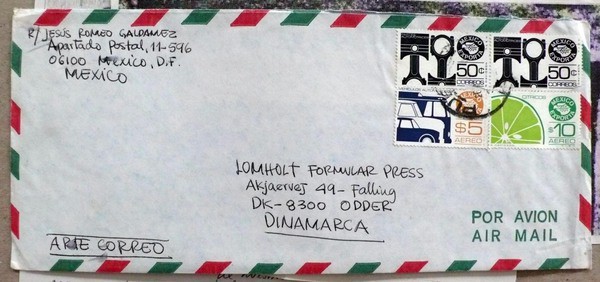 R/ JESÚS ROMEO GALDAMEZ
Apartado Postal, 11-596
06100 MEXICO, D.F.
MEXICO
MEXICO
EXPORTA
50¢
CORREOS
MEXICO
EXPORTA
50¢
CORREOS
MEXICO
EXPORTA
$5
AEREO
CITRICOS
MEXICO
EXPORTA
$10
AEREO
LOMHOLT FORMULAR PRESS
Akjaervej 49- Falling
DK-8300 ODDER
DINAMARCA
ARTE CORREO
POR AVION
AIR MAIL